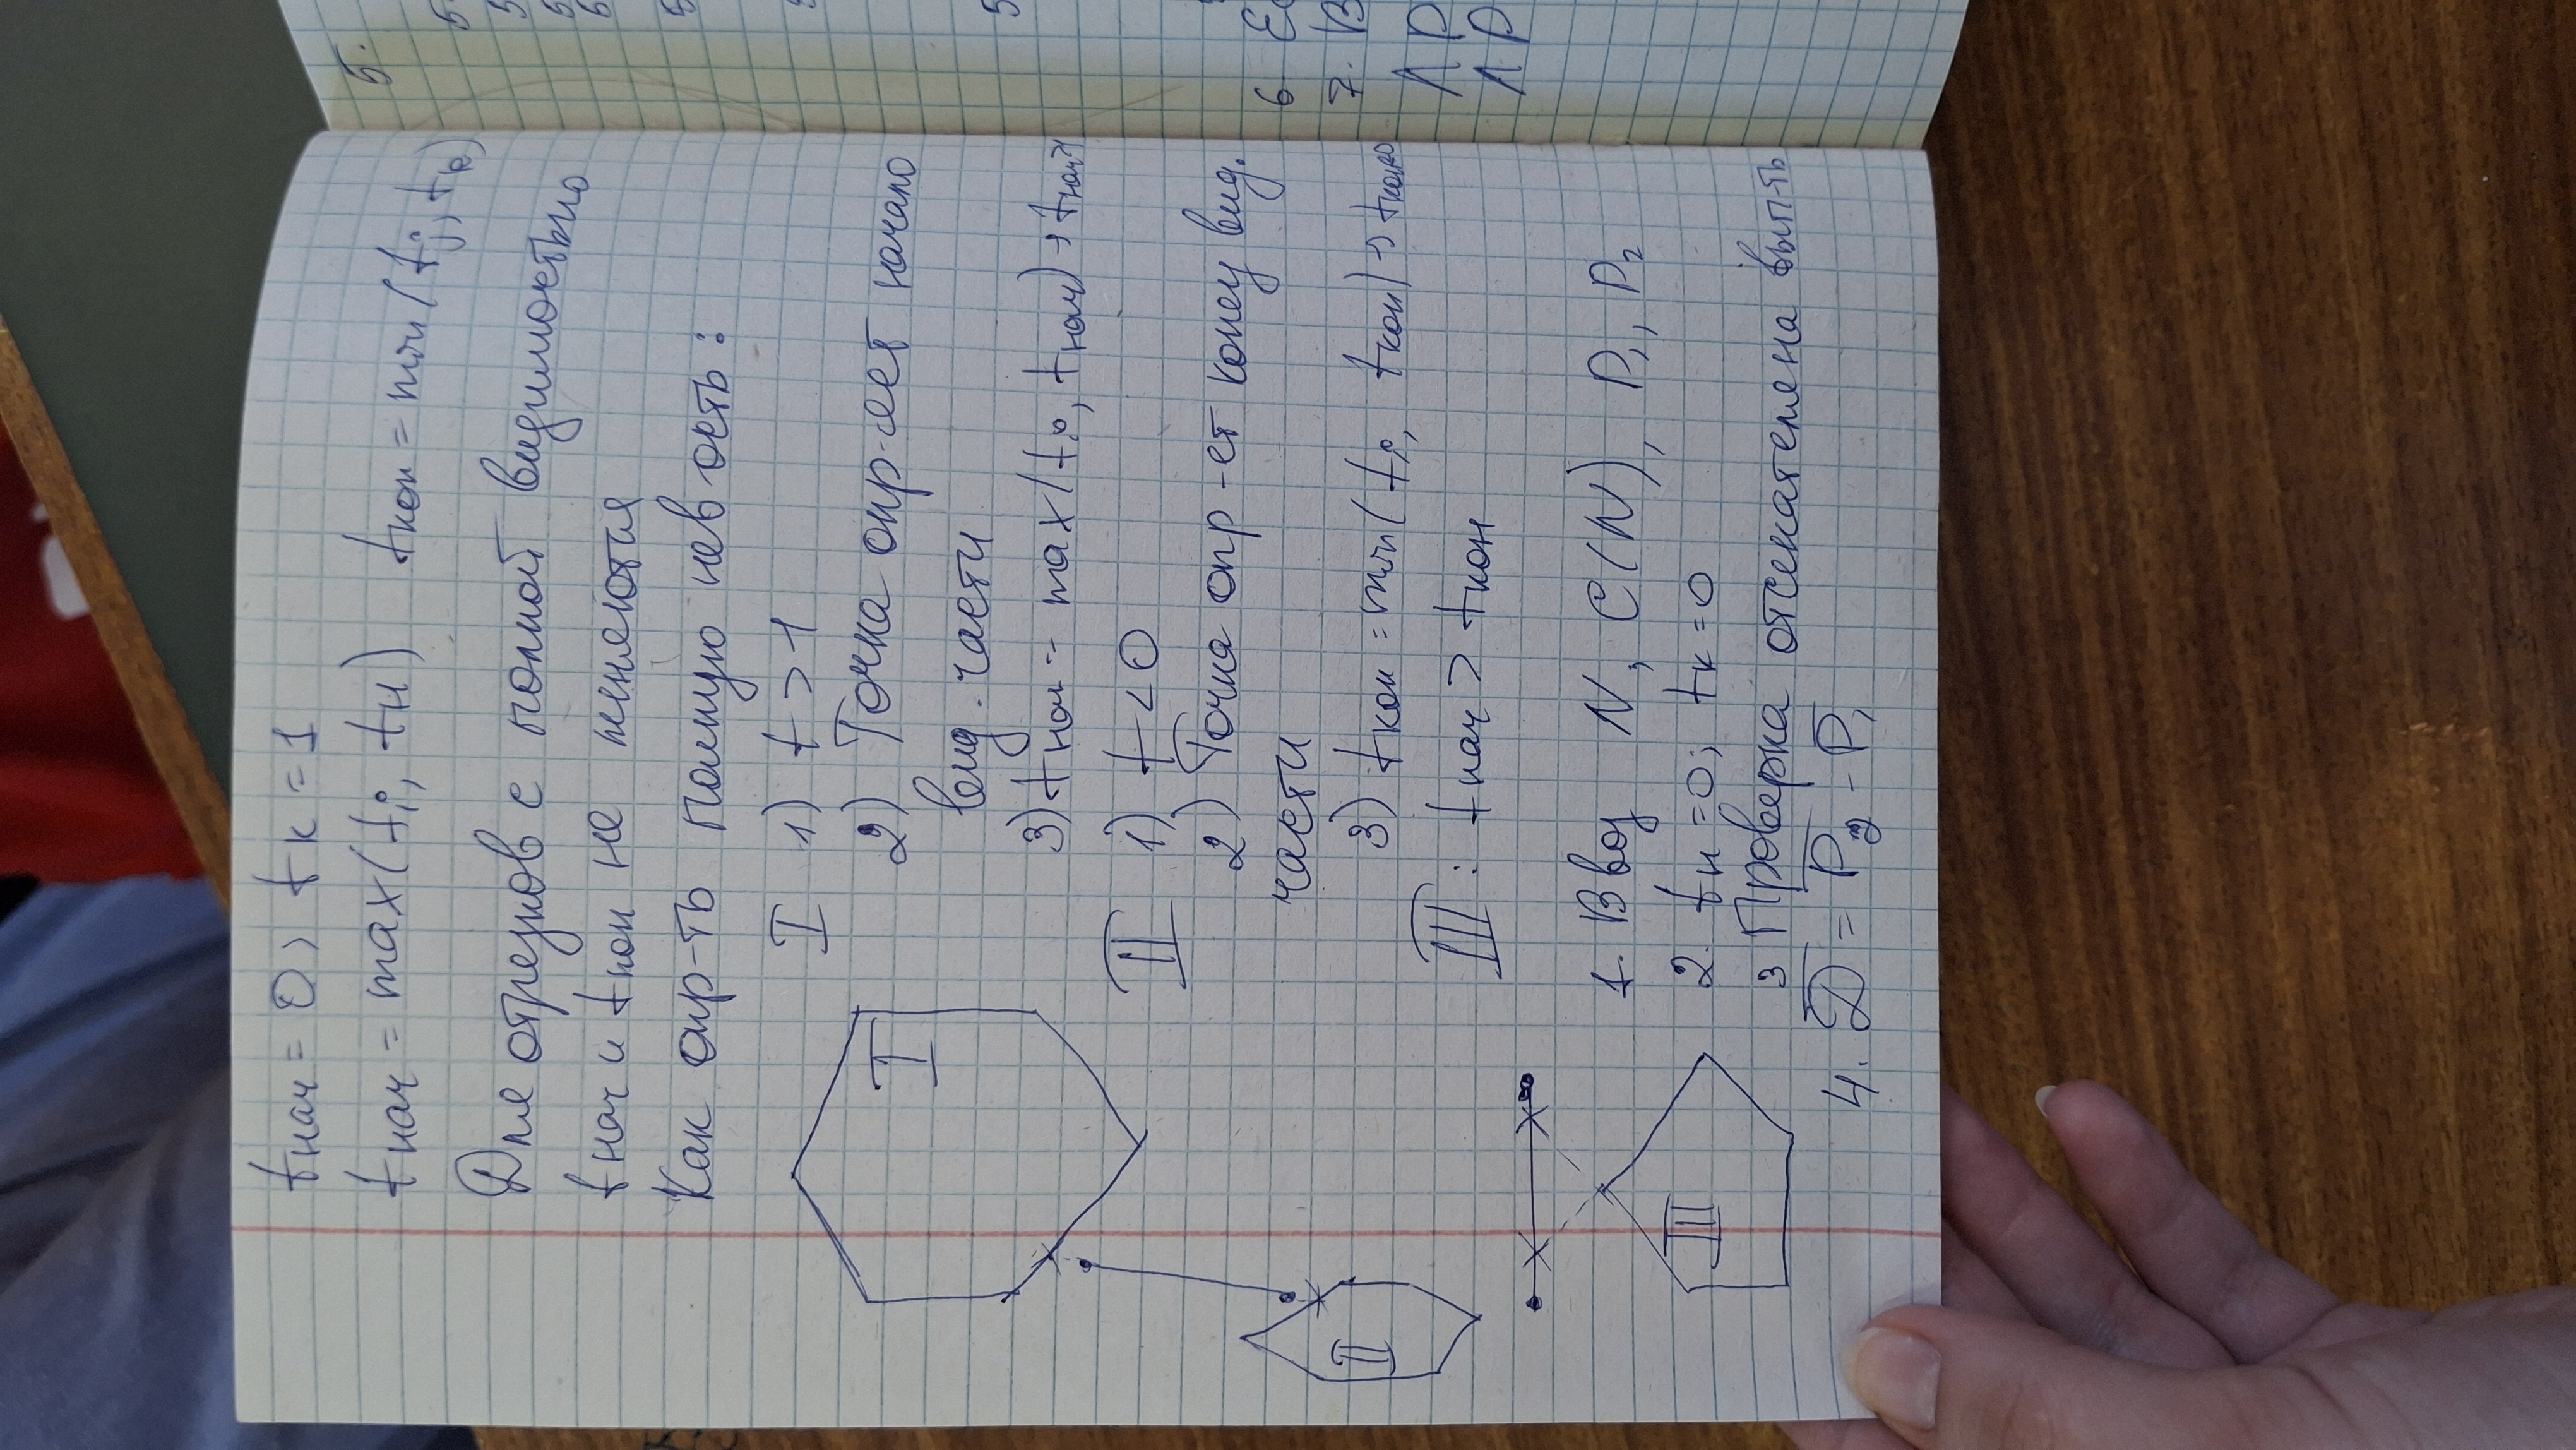 tнач = 0, tк = 1
tнач = max(ti, tн) tкон = min(tj, tк)
Для отрезков с полной видимостью
tнач и tкон не меняются
Как опр-ть полную нев ость:
I 1) t > 1
2) Точка опр-яет начало
вид. части
I
3) tнач = max(ti, tнач) → tнач>1
II 1) t < 0
2) Точка опр-ет конец вид.
части
II
3) tкон = min(ti, tкон) → tкон<0
III : tнач > tкон
1. Ввод N, C(N), P1, P2
III
2. tн = 0; tк = 0
3 Проверка отсекателя на вып-ть
4. D = P2 - P1
5.
6 Ес
7. В
ЛР
ЛР